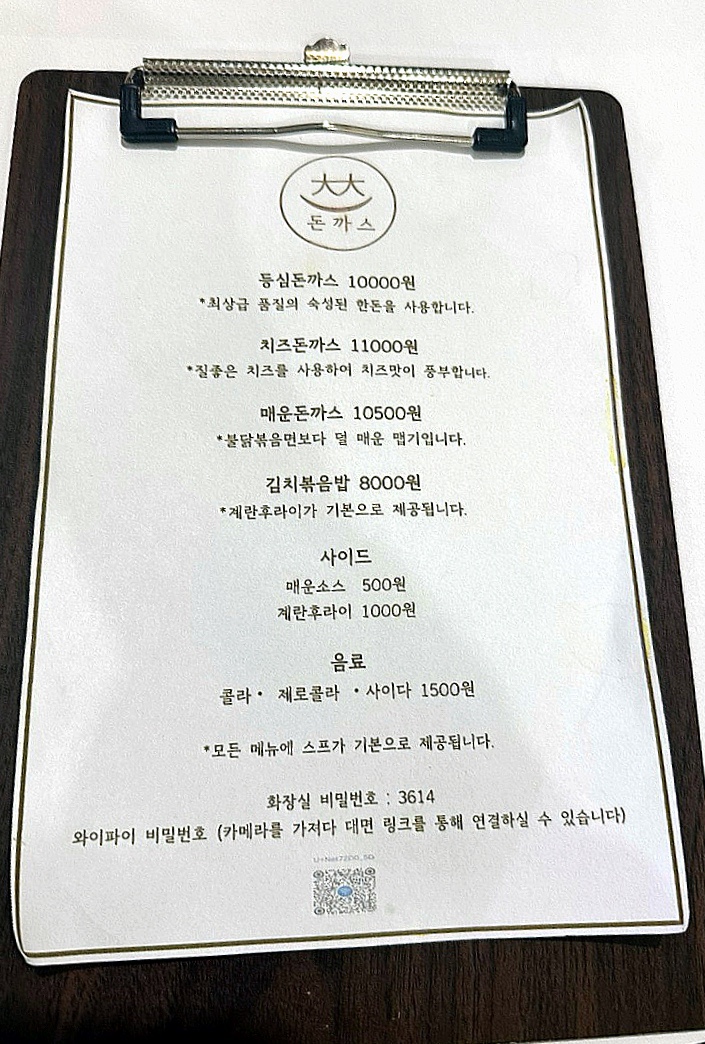 大大
돈까스
등심돈까스 10000원
*최상급 품질의 숙성된 한돈을 사용합니다.
치즈돈까스 11000원
*질좋은 치즈를 사용하여 치즈맛이 풍부합니다.
매운돈까스 10500원
*불닭볶음면보다 덜 매운 맵기입니다.
김치볶음밥 8000원
*계란후라이가 기본으로 제공됩니다.
사이드
매운소스 500원
계란후라이 1000원
음료
콜라• 제로콜라 •사이다 1500원
*모든 메뉴에 스프가 기본으로 제공됩니다.
화장실 비밀번호 : 3614
와이파이 비밀번호 (카메라를 가져다 대면 링크를 통해 연결하실 수 있습니다)